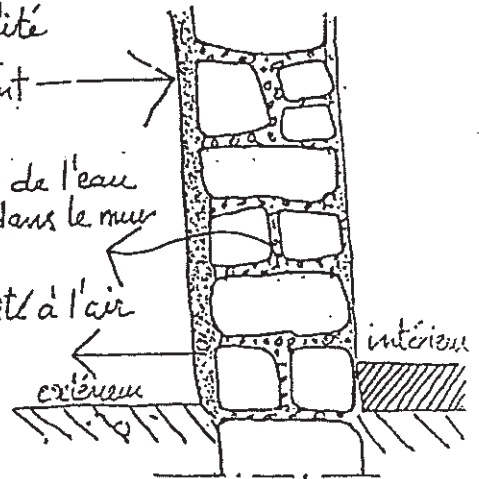 ité
nt
de l'eau
dans le mur
té à l'air
intérieur
extérieur